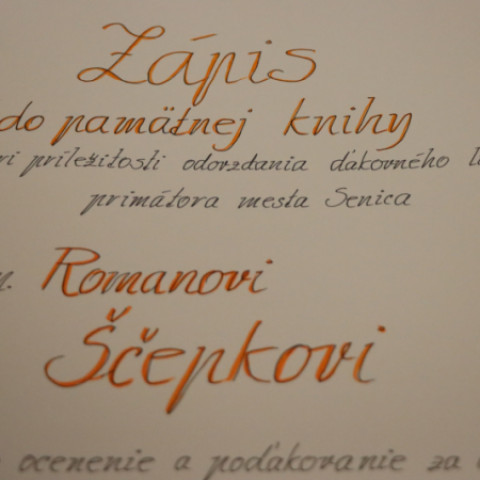 Zápis
do pamätnej knihy
pri príležitosti odovzdania ďakovného
primátora mesta Senica
Romanovi
Ščepkovi
ocenenie a poďakovanie za